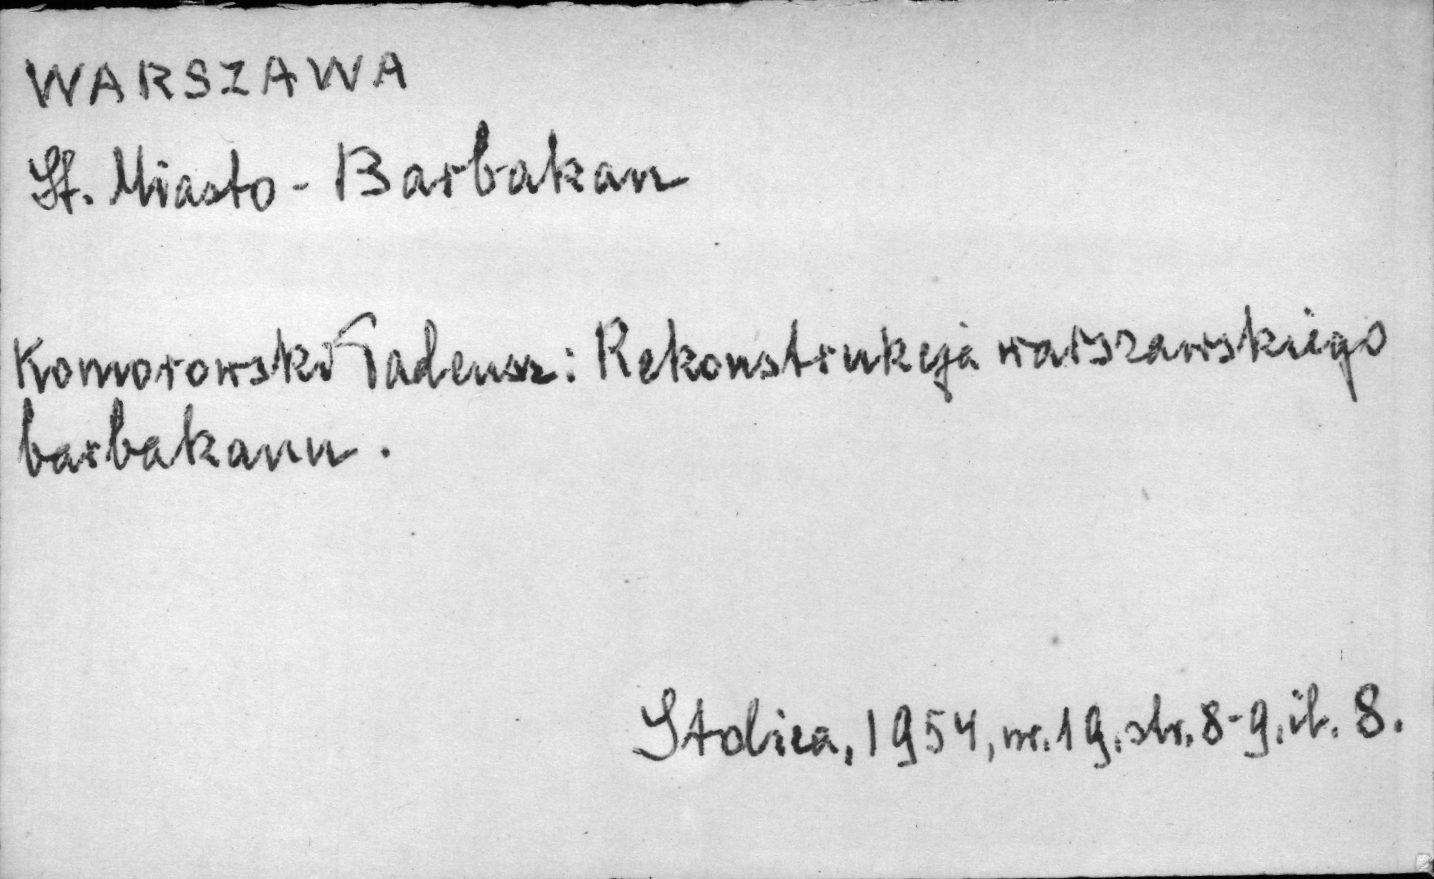 WARSZAWA
St. Miasto - Barbakan
Komorowski Tadeusz: Rekonstrukcja warszawskiego
barbakanu.
Stolica, 1954, nr. 19. str. 8-9. il. 8.